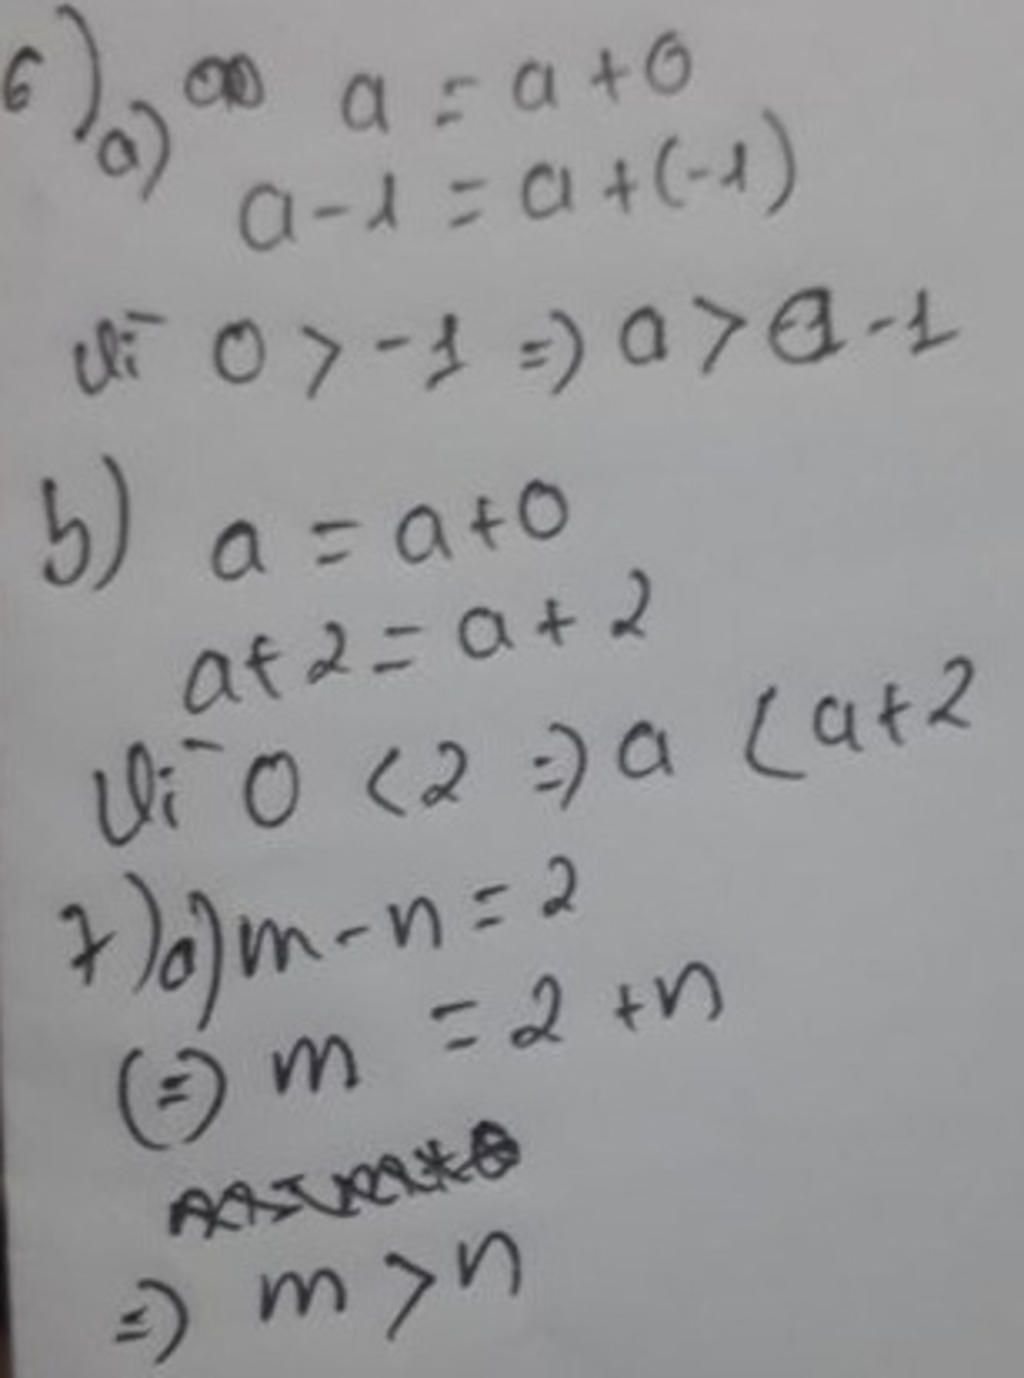 6) a) a = a + 0
a - 1 = a + (-1)
Vì 0 > -1 => a > a - 1
b) a = a + 0
a + 2 = a + 2
Vì 0 < 2 => a < a + 2
7) a) m - n = 2
(=) m = 2 + n
=> m > n